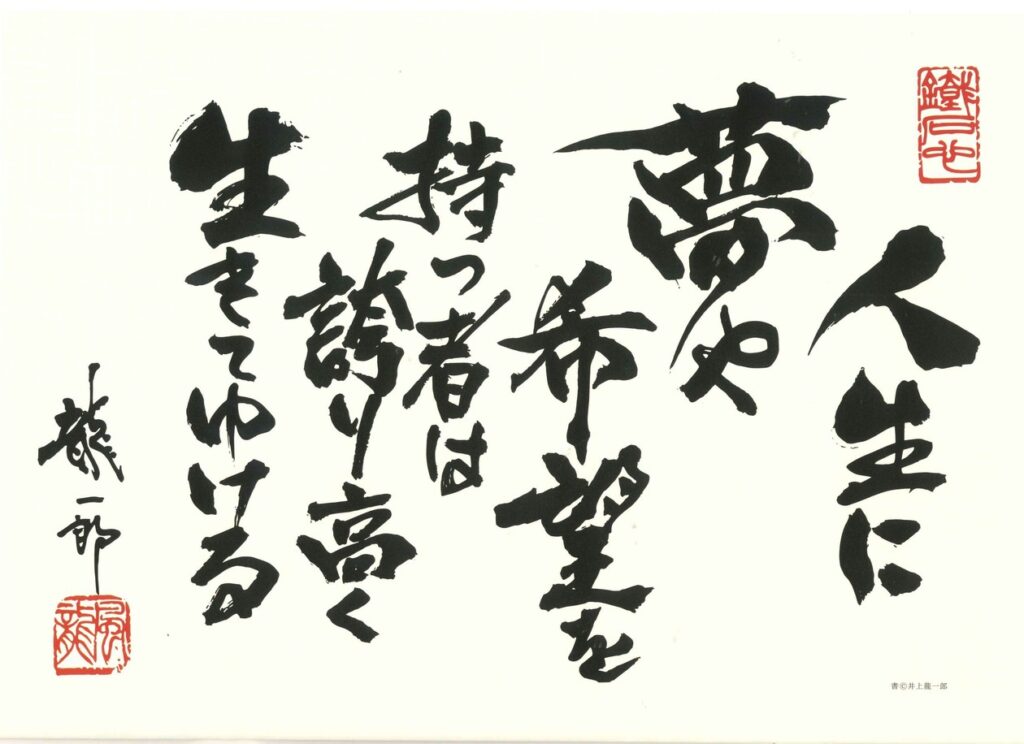 鐵石心
人生に
夢や
希望を
持つ者は
誇り高く
生きてゆける
龍一郎
風龍
書©井上龍一郎